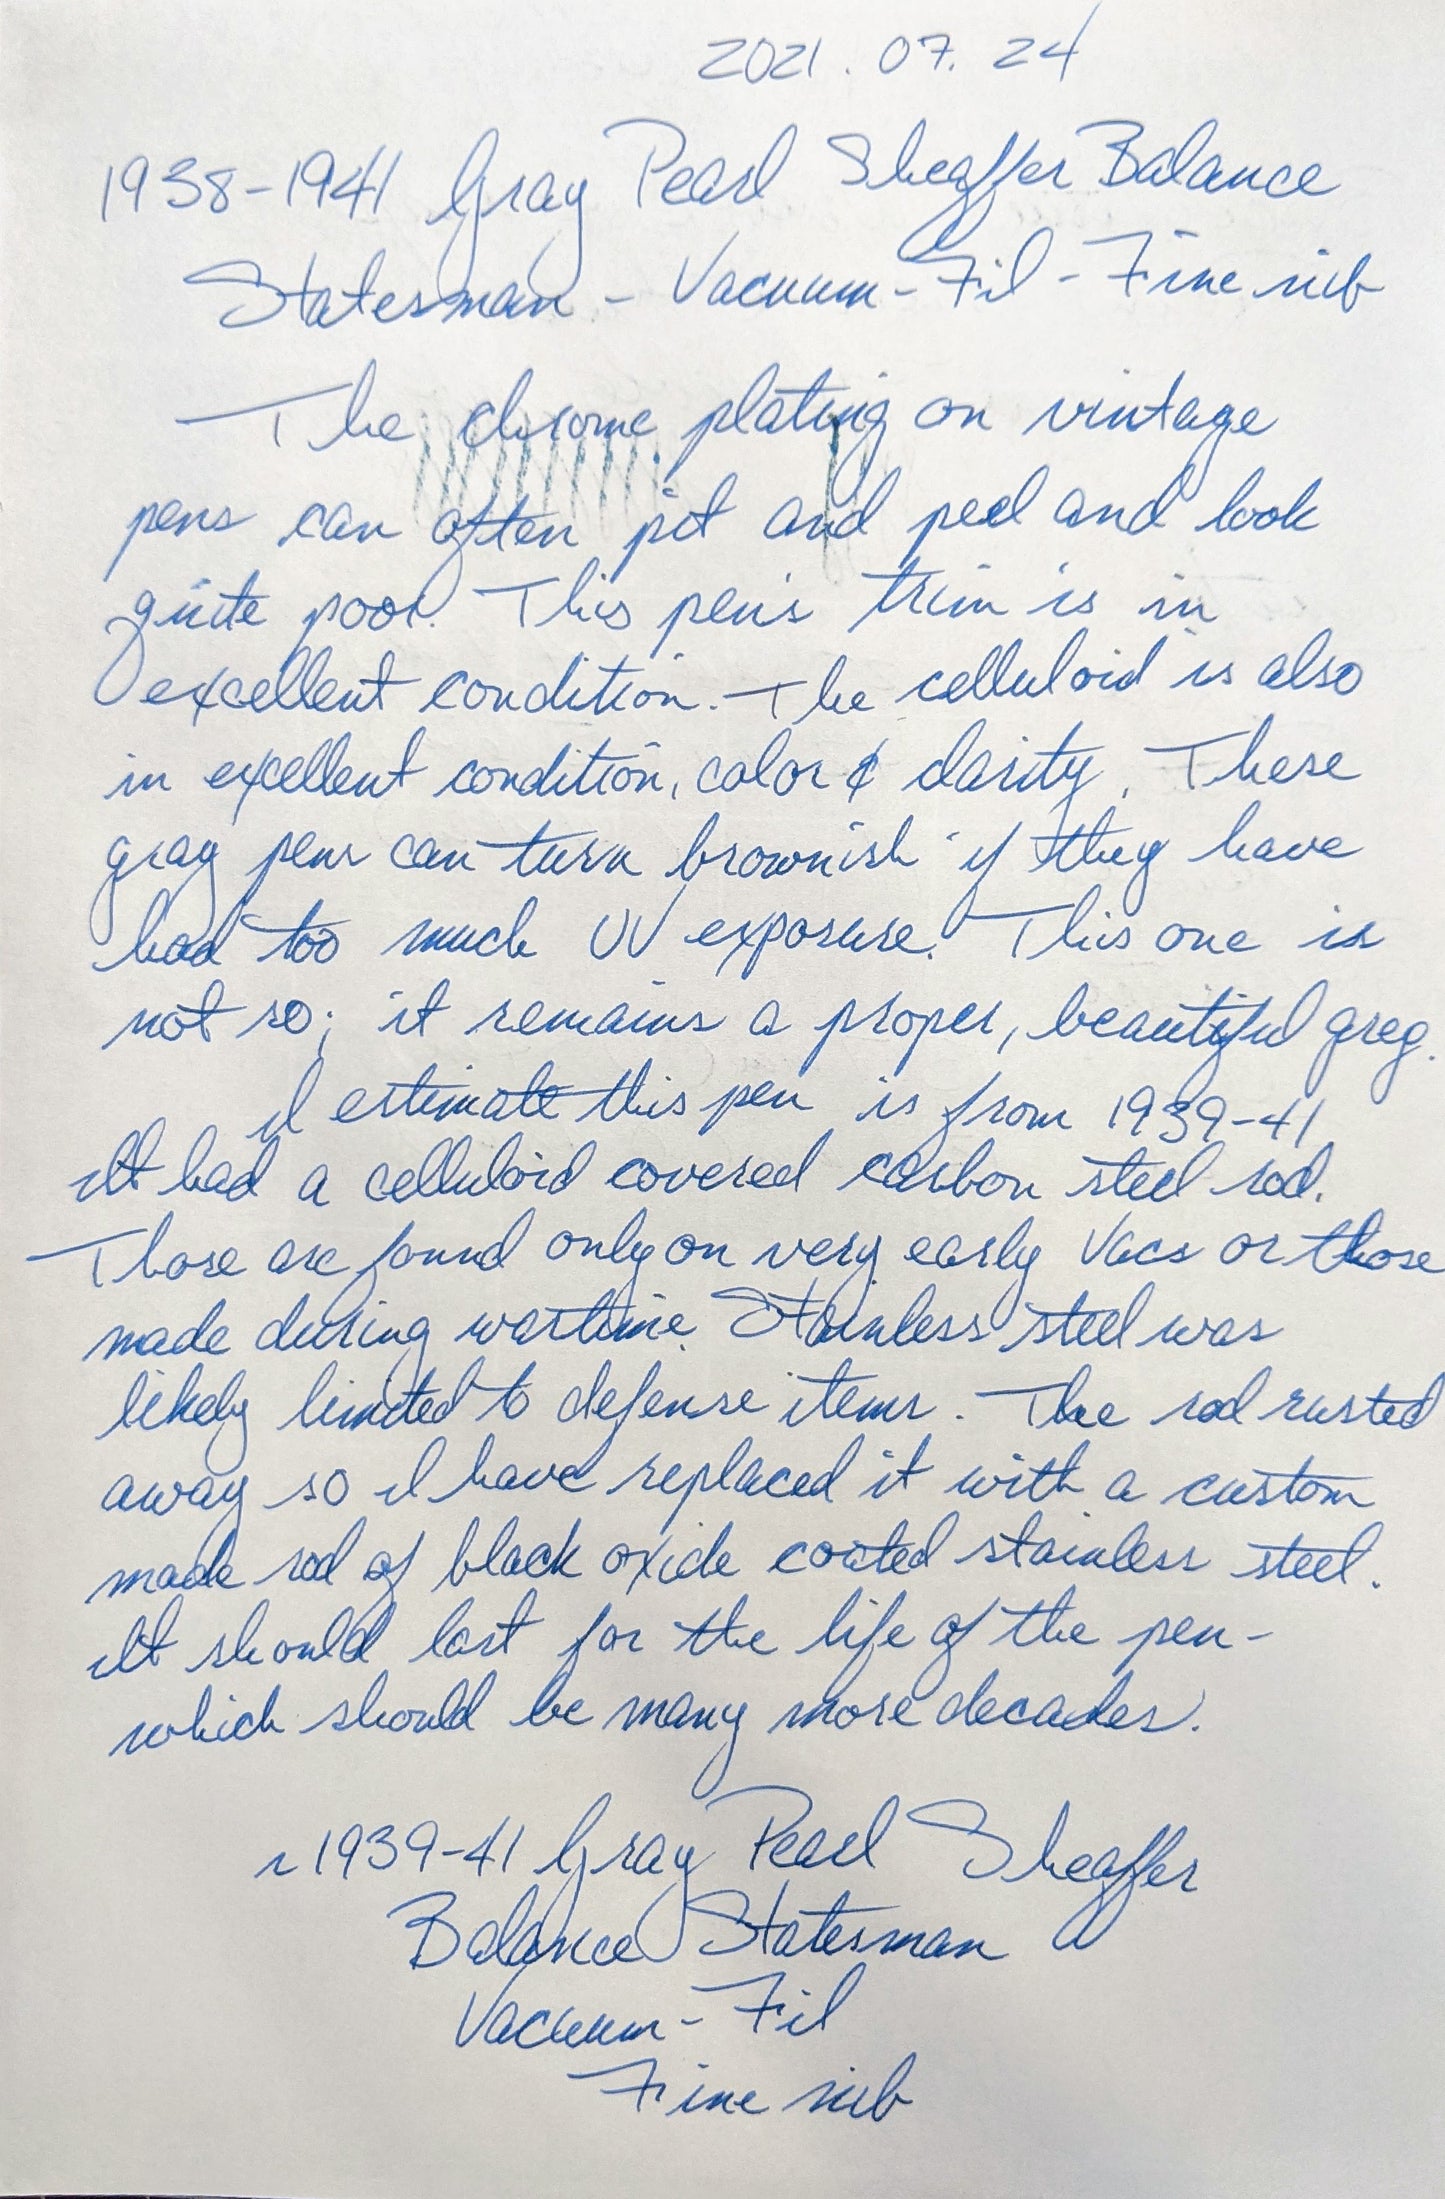 2021.07.24
1938-1941 Gray Pearl Sheaffer Balance
Statesman - Vacuum-Fil - Fine nib
The chrome plating on vintage
pens can often pit and peel and look
quite poor. This pen's trim is in
excellent condition. The celluloid is also
in excellent condition, color & clarity. These
gray pens can turn brownish if they have
had too much UV exposure. This one is
not so; it remains a proper, beautiful grey.
I estimate this pen is from 1939-41
It had a celluloid covered carbon steel rod.
Those are found only on very early Vacs or those
made during wartime. Stainless steel was
likely limited to defense items. The rod rusted
away so I have replaced it with a custom
made rod of black oxide coated stainless steel.
It should last for the life of the pen -
which should be many more decades.
~1939-41 Gray Pearl Sheaffer
Balance Statesman
Vacuum-Fil
Fine nib